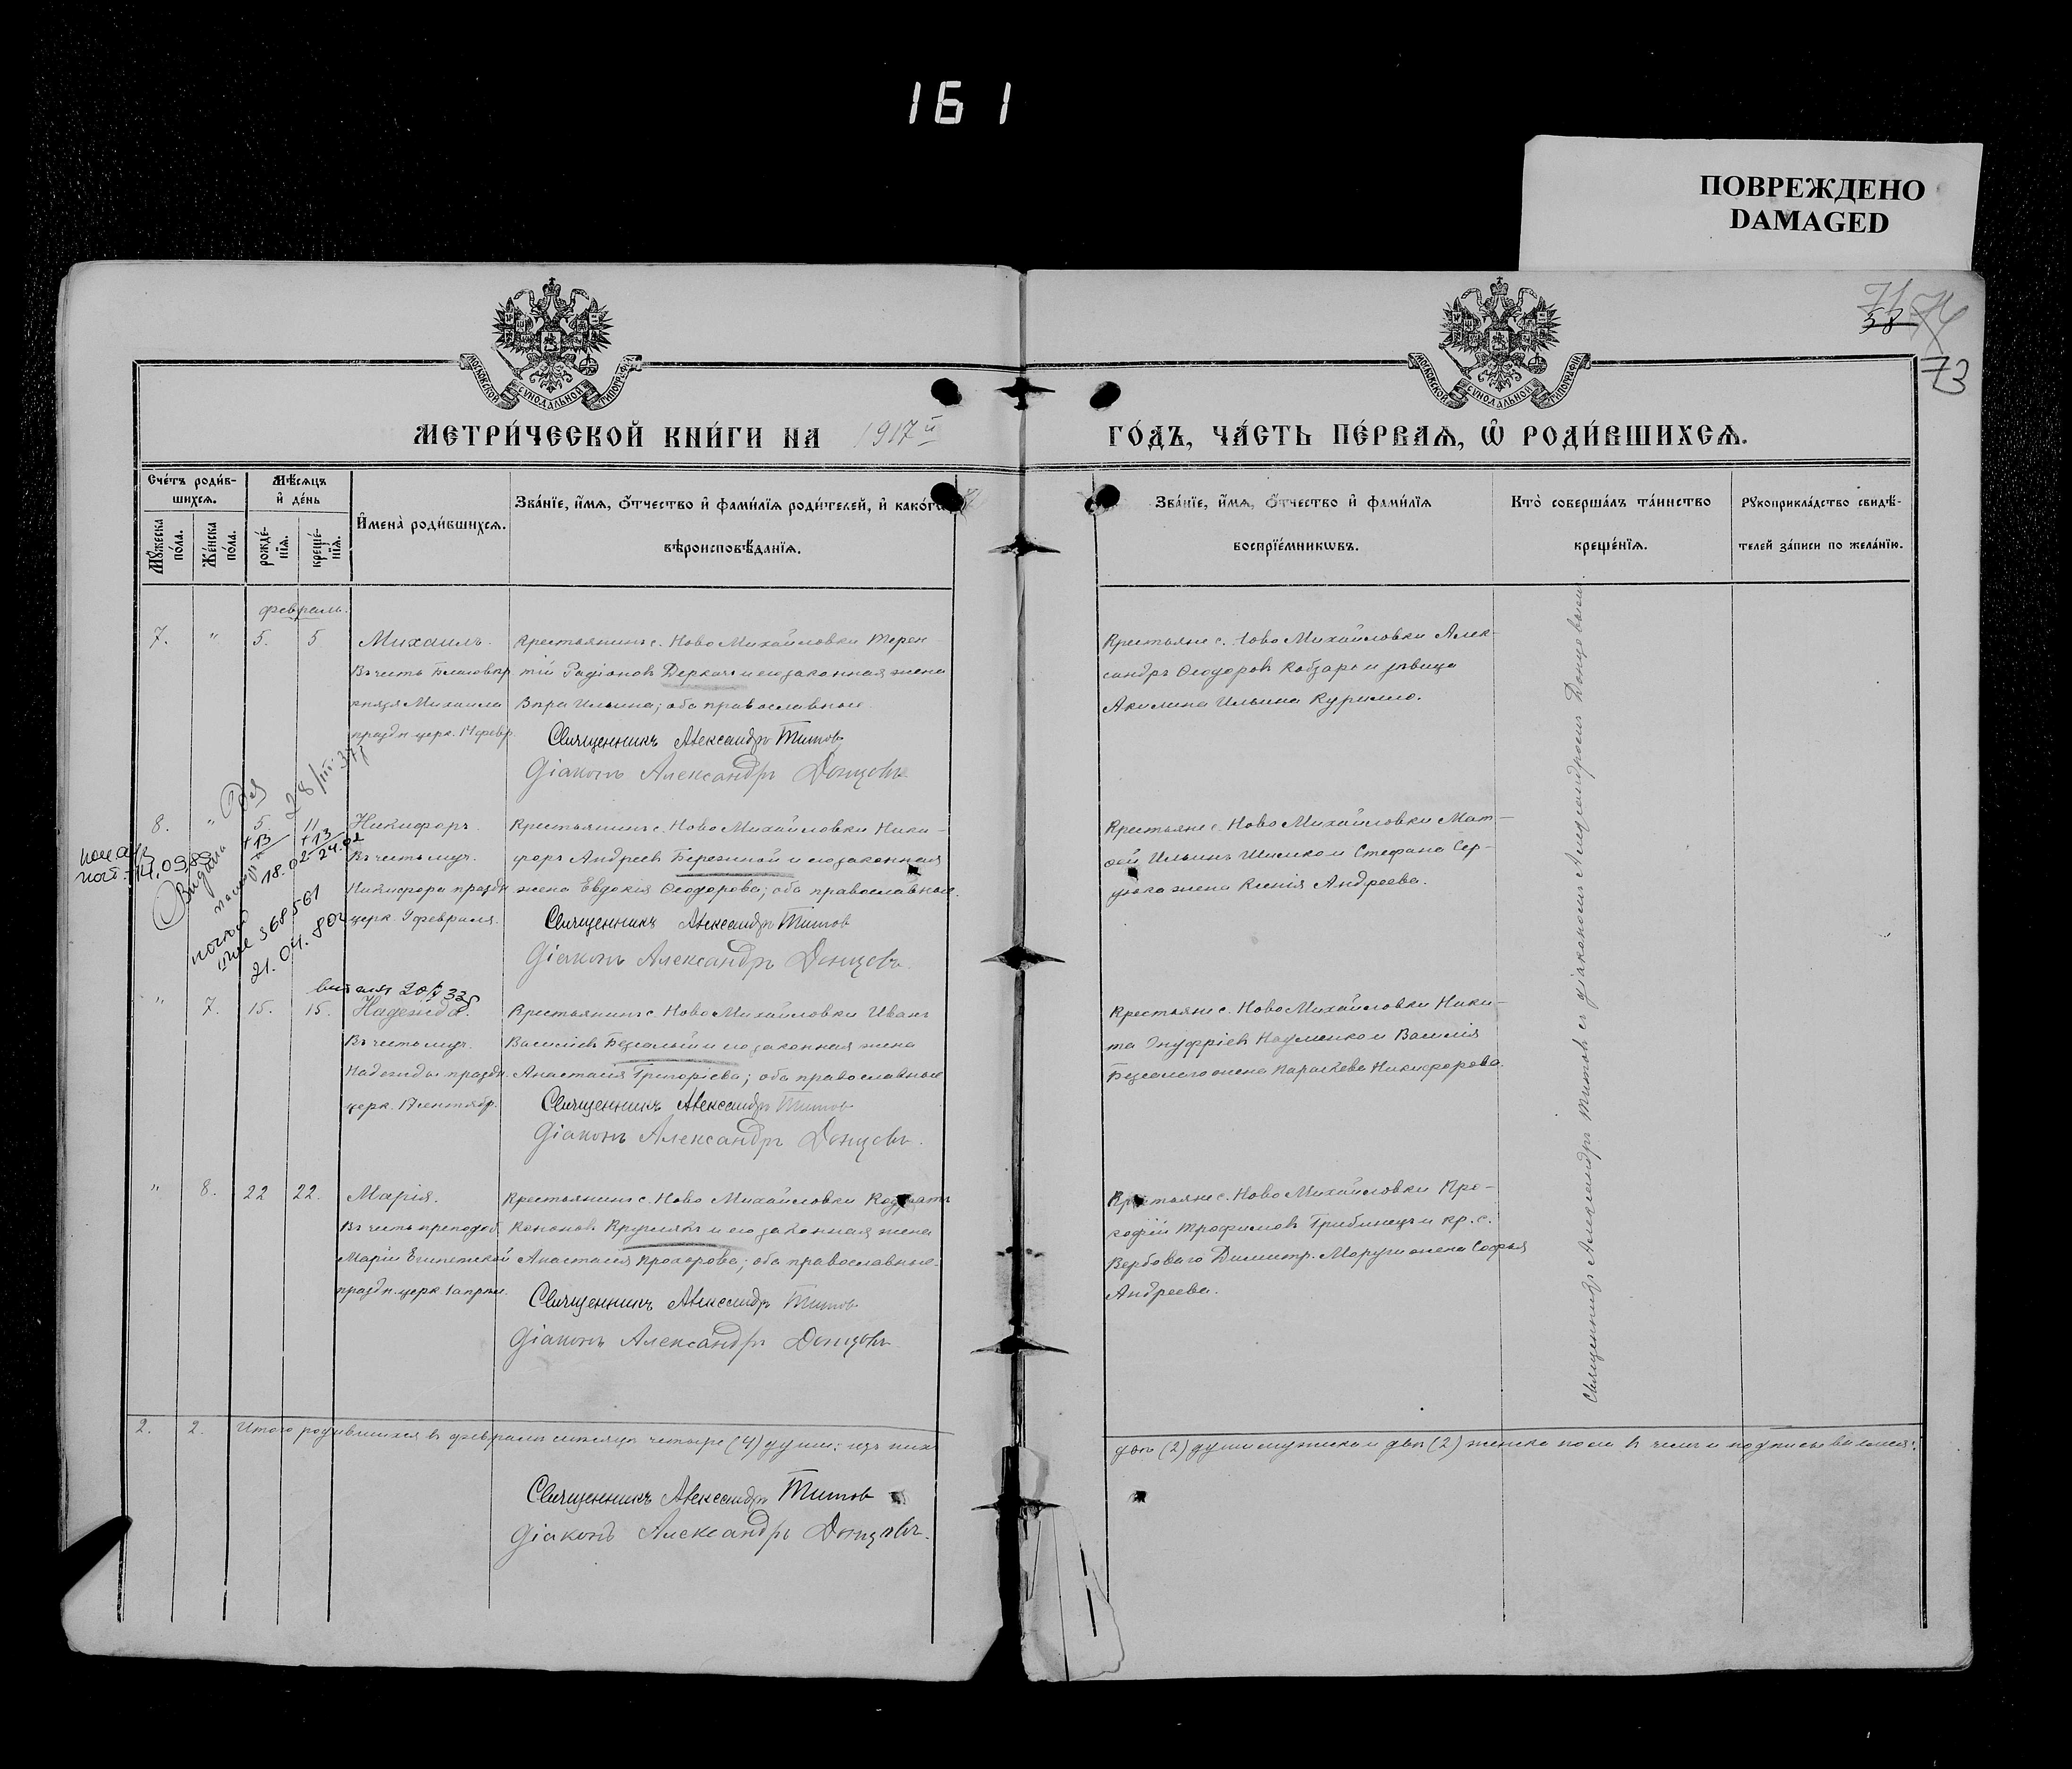 161
ПОВРЕЖДЕНО
DAMAGED
58
73
МОСКОВСКОЙ СѴНОДАЛЬНОЙ ТИПОГРАФІИ
МОСКОВСКОЙ СѴНОДАЛЬНОЙ ТИПОГРАФІИ
МЕТРИ́ЧЕСКОЙ КНИ́ГИ НА 1917й ГО́ДЪ, ЧА́СТЬ ПЕ́РВАѦ, Ѡ РОДИ́ВШИХСѦ.
Сче́тъ роди́в-
шихсѧ.
Мѣ́сѧцъ
и҆ де́нь
Мꙋ́жеска
по́ла.
Же́нска
по́ла.
рожде́-
нїѧ.
креще́-
нїѧ.
И҆мена̀ роди́вшихсѧ.
Зва́нїе, и҆́мѧ, ѻ҆́тчество и҆ фами́лїѧ роди́телей, и҆ како́гѡ
вѣроисповѣ́данїѧ.
Зва́нїе, и҆́мѧ, ѻ҆́тчество и҆ фами́лїѧ
воспрїе́мникѡвъ.
Кто̀ соверша́лъ та́инство
креще́нїѧ.
Рꙋкоприкла́дство свидѣ́-
телей за́писи по жела́нїю.
Февраль.
7. " 5. 5 Михаилъ.
Въ честь Благовѣр.
князя Михаила
праздн. церк. 14 февр.
Крестьянинъ с. Ново Михайловки Терен-
тій Радіоновъ Деркачъ и его законная жена
Вѣра Ильина; оба православные
Священникъ Александръ Титовъ
Діаконъ Александръ Донцовъ
Крестьяне с. Ново Михайловки Алек-
сандръ Ѳеодоровъ Кобзарь и дѣвица
Акилина Ильина Курилло.
28/III 37
8. " 5. 11 Никифоръ.
+13 +13
18.02 24.02
14.09.
Выдано
паспорт
368561
21.04.80г
Въ честь муч.
Никифора праздн.
церк. 9 февраля.
Крестьянинъ с. Ново Михайловки Ники-
форъ Андреевъ Бережной и его законная
жена Евдокія Ѳеодорова; оба православные.
Священникъ Александръ Титовъ
Діаконъ Александръ Донцовъ
Крестьяне с. Ново Михайловки Мат-
ѳей Ильинъ Шило и Стефана Сер-
жена Ксенія Андреева.
" 7. 15. 15. Надежда.
Въ честь муч.
Надежды праздн.
церк. 17 сентябр.
Крестьянинъ с. Ново Михайловки Иванъ
Василіевъ Безсалый и его законная жена
Анастасія Григоріева; оба православные
Священникъ Александръ Титовъ
Діаконъ Александръ Донцовъ.
Крестьяне с. Ново Михайловки Ники-
та Онуфріевъ Науменко и Василія
Безсалаго жена Параскева Никифорова.
" 8. 22 22. Марія.
Въ честь преподоб.
Маріи Египетской
праздн. церк. 1 апрѣл.
Крестьянинъ с. Ново Михайловки Кодратъ
Кононовъ Круглякъ и его законная жена
Анастасія Прохорова; оба православные.
Священникъ Александръ Титовъ
Діаконъ Александръ Донцовъ
Крестьяне с. Ново Михайловки Про-
кофій Трофимовъ Грибинецъ и кр. с.
Вербоваго Димитр. Моруги жена Софья
Андреева.
Священникъ Александръ Титовъ съ діакономъ Александромъ Донцовымъ
2. 2. Итого родившихся въ февралѣ мѣсяцѣ четыре (4) души; изъ нихъ
двѣ (2) души мужска и двѣ (2) женска пола въ чемъ и подписываемся:
Священникъ Александръ Титовъ
Діаконъ Александръ Донцовъ.